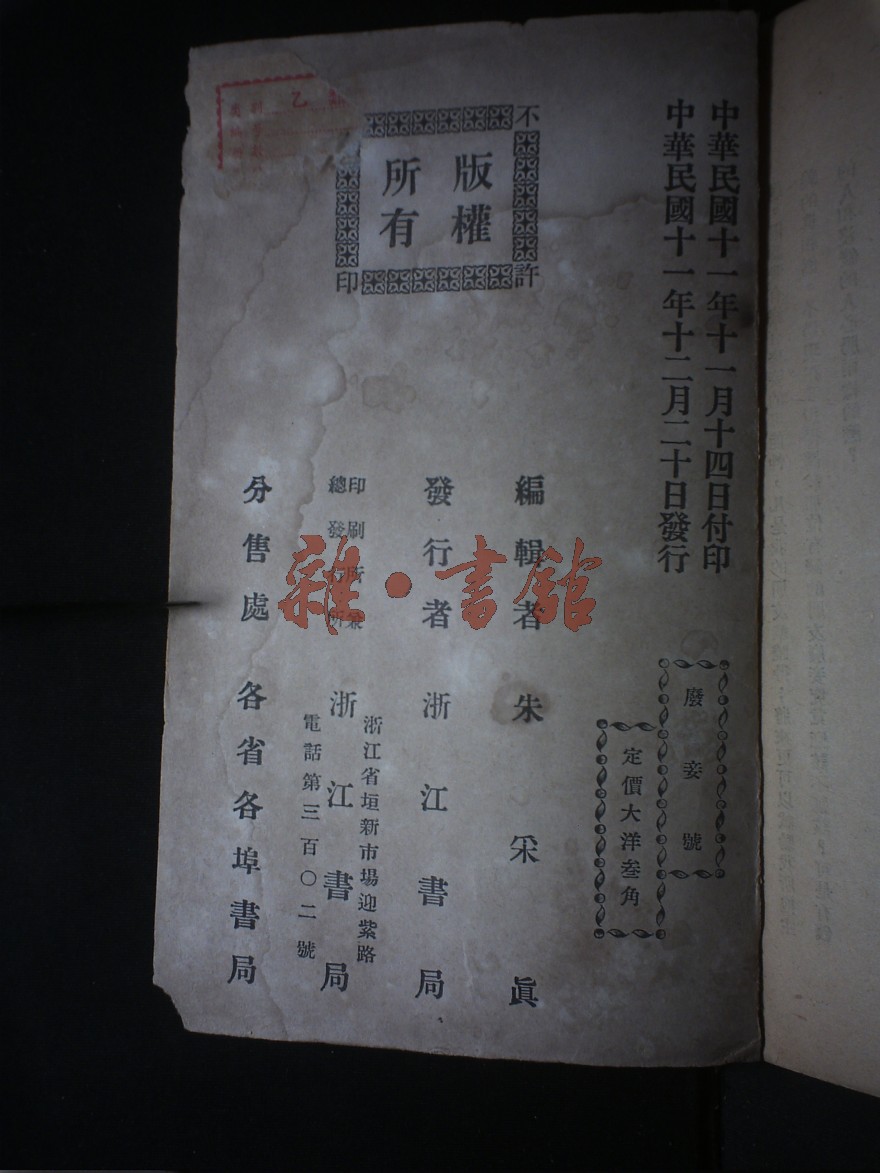 中華民國十一年十一月十四日付印
中華民國十一年十二月二十日發行
廢妾號
定價大洋叁角
不許
印
版權
所有
編輯者 朱采眞
發行者 浙江書局
印刷所兼
總發行所
浙江書局
浙江省垣新市場迎紫路
電話第三百〇二號
分售處 各省各埠書局
乙
雜·書館